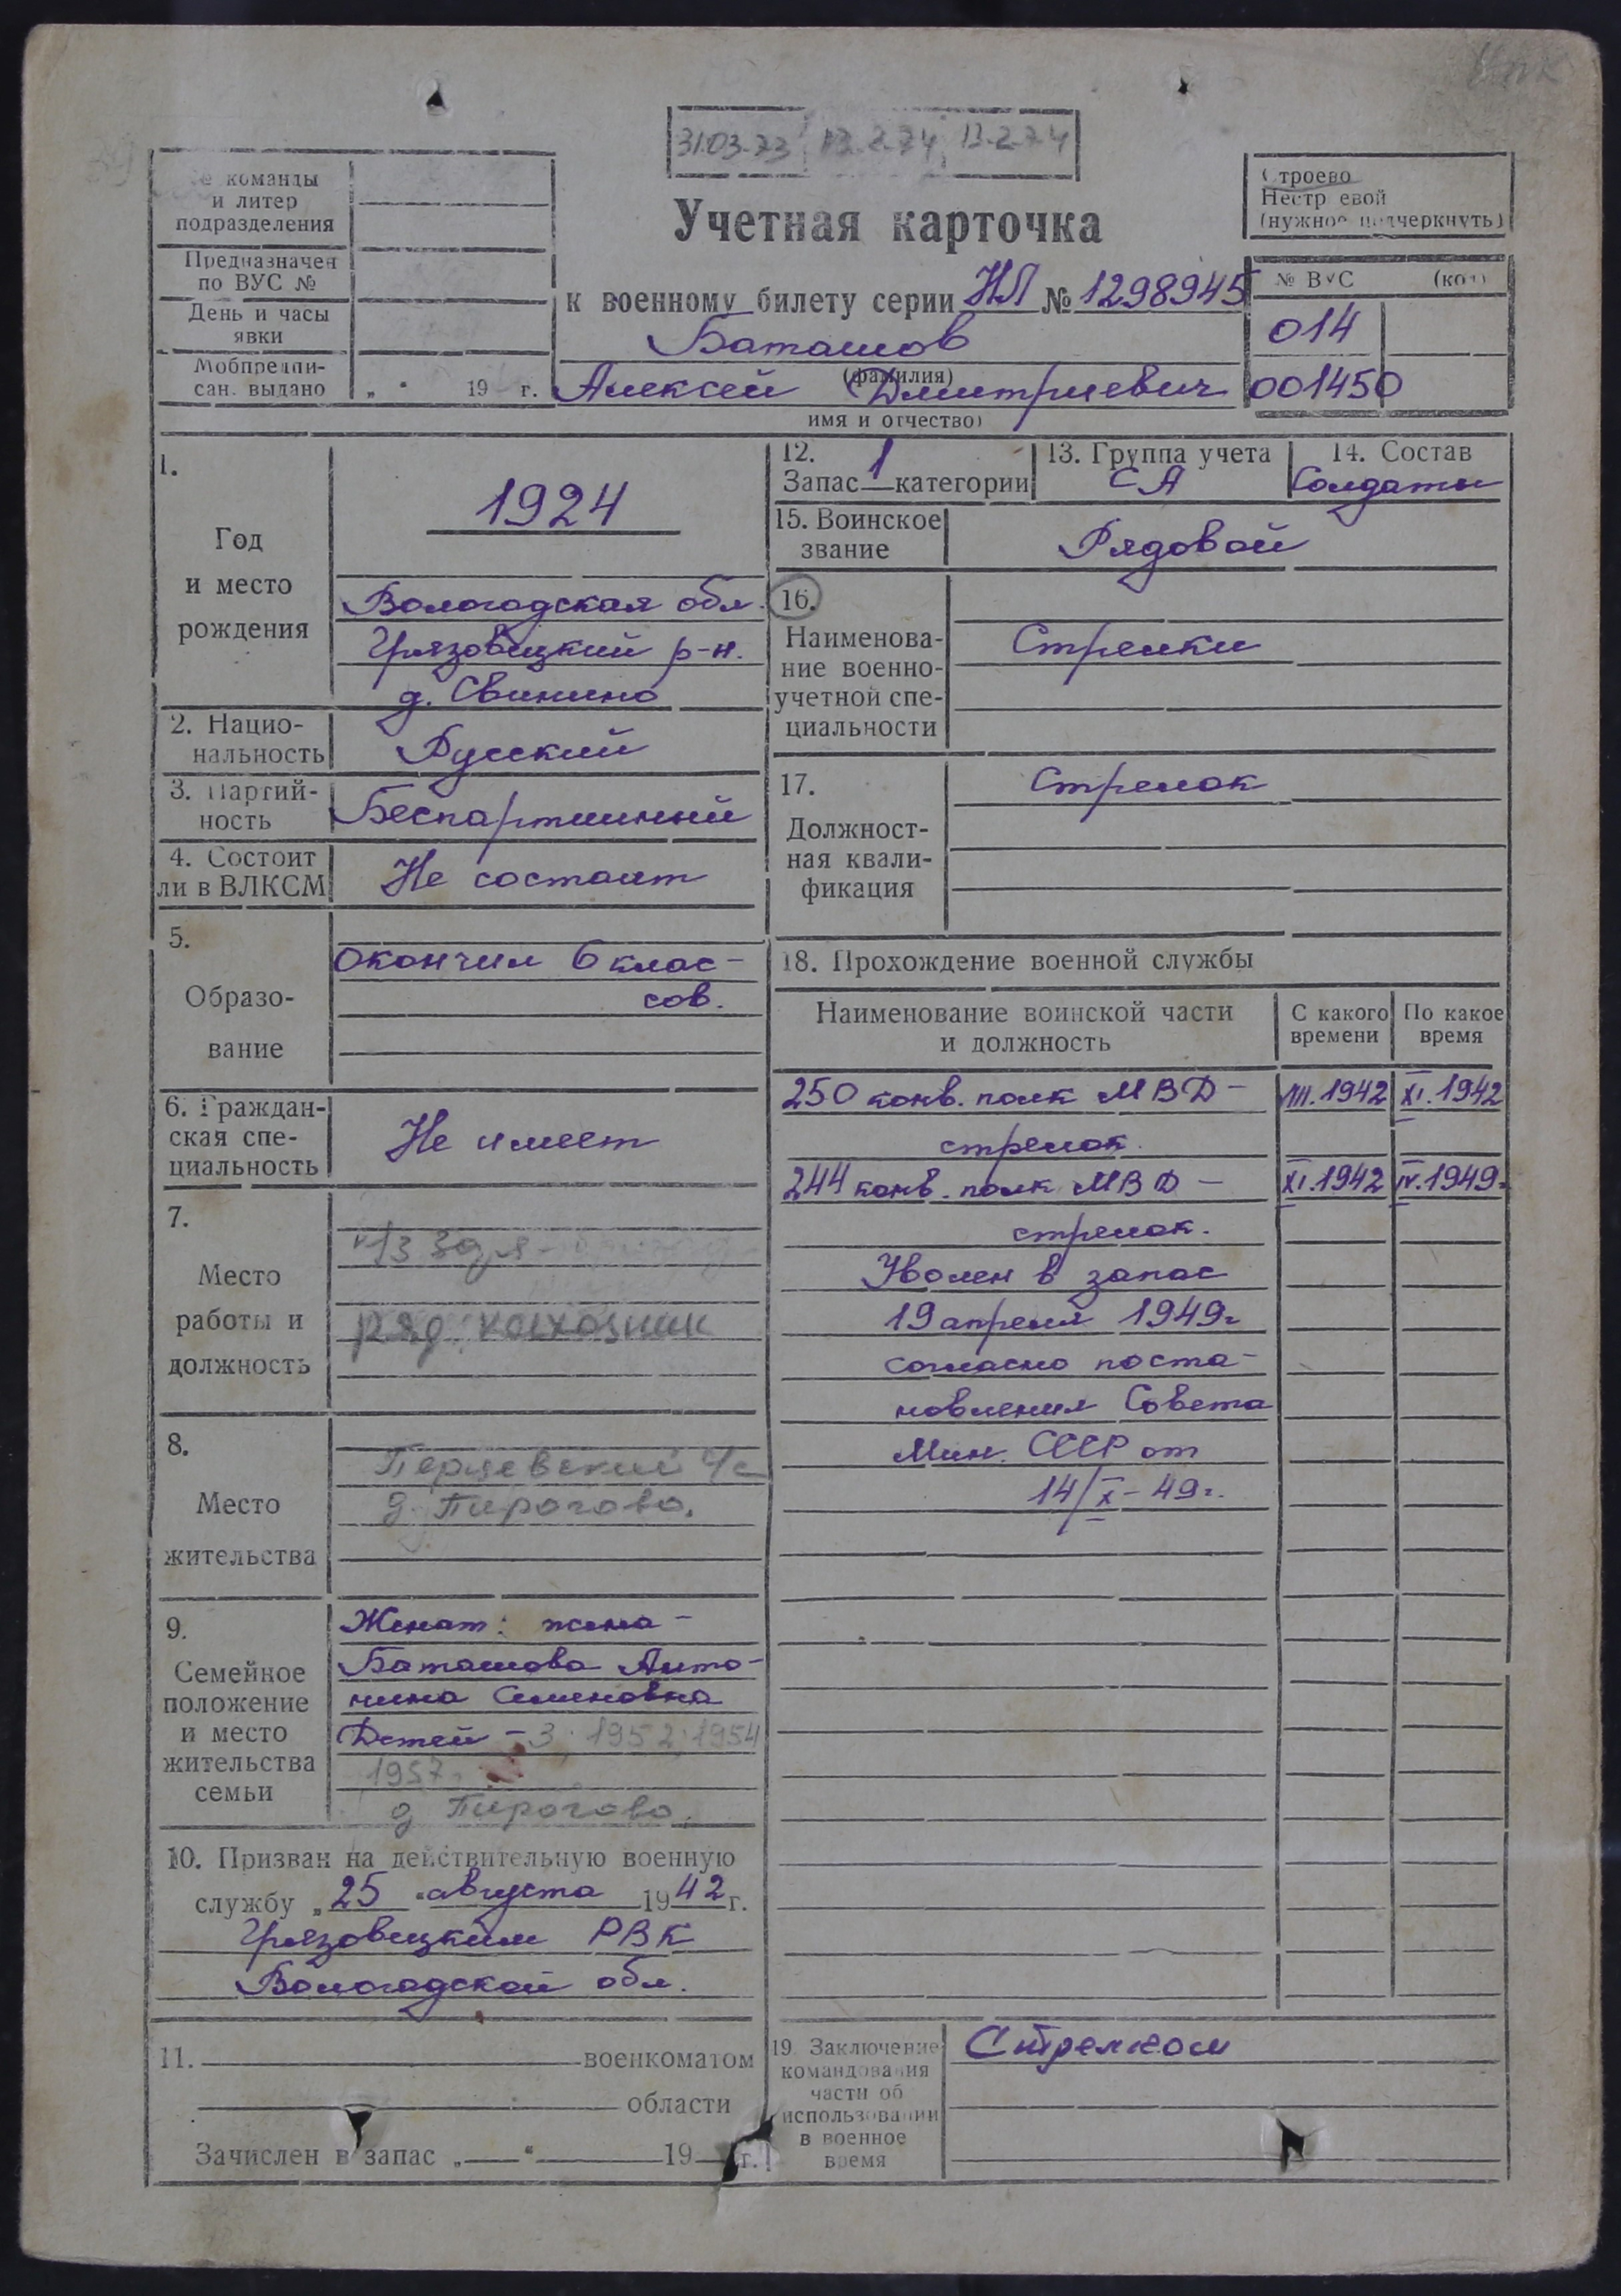 31.03.73 13.2.74 13.2.74
команды
и литер
подразделения
Предназначен
по ВУС №
День и часы
явки
Мобпредпи-
сан. выдано „ " 19 г.
Учетная карточка
к военному билету серии НЛ № 1298945
Баташов
(фамилия)
Алексей Дмитриевич
имя и отчество)
Строево
Нестр евой
(нужное подчеркнуть)
№ ВУС (код)
014
001450
1.
Год
и место
рождения
1924
Вологодская обл.
Грязовецкий р-н.
д. Свинино
2. Нацио-
нальность
Русский
3. Партий-
ность
Беспартийный
4. Состоит
ли в ВЛКСМ
Не состоит
5.
Образо-
вание
Окончил 6 клас-
сов.
6. Граждан-
ская спе-
циальность
Не имеет
7.
Место
работы и
должность
ряд. колхозник
8.
Место
жительства
Перцевский с/с
д. Пирогово.
9.
Семейное
положение
и место
жительства
семьи
Женат: жена -
Баташова Анто-
нина Семеновна
Детей - 3; 1952; 1954
1957.
д Пирогово.
10. Призван на действительную военную
службу „ 25 " августа 1942 г.
Грязовецким РВК
Вологодской обл.
11. военкоматом
области
Зачислен в запас „ " 19 г.
12.
Запас 1 категории
13. Группа учета
СА
14. Состав
Солдаты
15. Воинское
звание
Рядовой
16.
Наименова-
ние военно-
учетной спе-
циальности
Стрелки
17.
Должност-
ная квали-
фикация
Стрелок
18. Прохождение военной службы
Наименование воинской части
и должность
С какого
времени
По какое
время
250 конв. полк МВД - VIII.1942 XI.1942
стрелок.
244 конв. полк МВД - XI.1942 IV.1949.
стрелок.
Уволен в запас
19 апреля 1949г
согласно поста-
новления Совета
Мин. СССР от
14/X - 49г.
19. Заключение
командования
части об
использовании
в военное
время
Стрелком